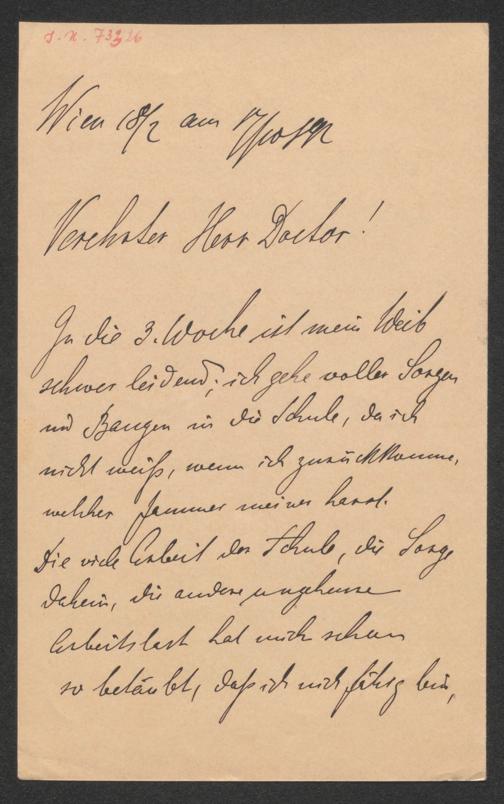 J. N. 73326
Wien 18/2 am
Verehrter Herr Doctor!
In die 3. Woche ist mein Weib
schwer leidend; ich gehe voller Sorgen
und Bangen in die Schule, da ich
nicht weiß, wenn ich zurückkomme,
welcher Jammer meiner harrt.
Die viele Arbeit der Schule, die Sorge
daheim, die andere ungeheure
Arbeitslast hat mich schon
so betäubt, daß ich nicht fähig bin,